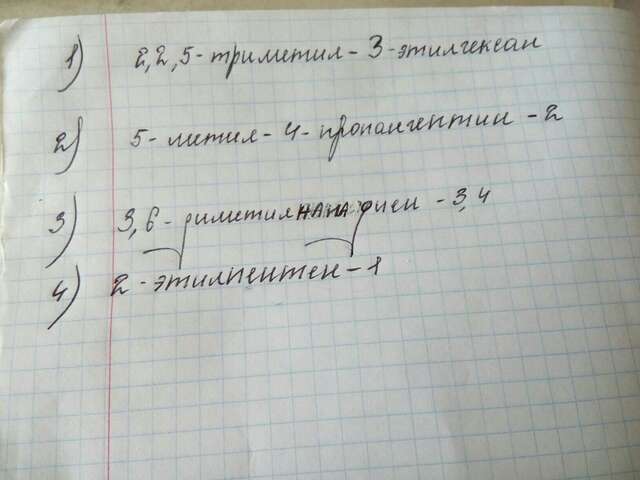 1) 2,2,5-триметил-3-этилгексан
2) 5-метил-4-пропилгептин-2
3) 3,6-диметилнонадиен-3,4
4) 2-этилпентен-1